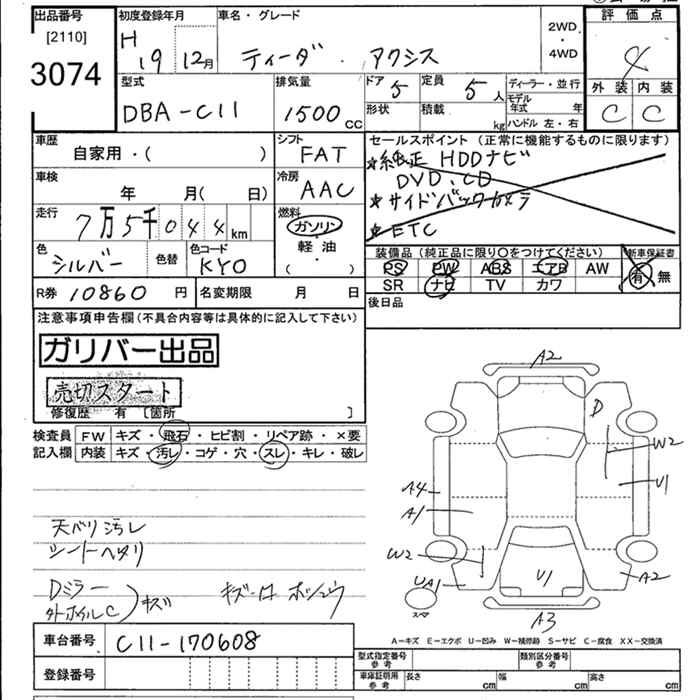 出品番号
[2110]
3074
初度登録年月
H 19 12月
車名・グレード
ティーダ ・ アクシス
2WD
・
4WD
評価点
4
外装 内装
C C
型式
DBA-C11
排気量
1500 cc
ドア 5
定員 5人
ディーラー・並行
モデル年式 年
形状
積載 kg
ハンドル 左・右
車歴
自家用・( )
シフト
FAT
車検
年 月( 日)
冷房
AAC
走行
7万5千044km
燃料
ガソリン
軽・油
( )
色
シルバー
色替
色コード
KY0
R券 10860 円
名変期限 月 日
セールスポイント (正常に機能するものに限ります)
★純正 HDDナビ
DVD.CD
★サイドバックカメラ
★ETC
装備品 (純正品に限り○をつけてください)
新車保証書
PS PW ABS エアB AW
SR ナビ TV カワ
有 無
後日品
注意事項申告欄(不具合内容等は具体的に記入して下さい)
ガリバー出品
売切スタート
修復歴 有 〔箇所 〕
検査員 FW キズ・飛石・ヒビ割・リペア跡・×要
記入欄 内装 キズ・汚レ・コゲ・穴・スレ・キレ・破レ
天バリ汚レ
シートヘタリ
Dミラー
外ホイルC
キズ
A2
D
W2
U1
A4
A1
W2
UA1
U1
A2
A3
スペア
A-キズ E-エクボ U-凹み W-補修跡 S-サビ C-腐食 XX-交換済
車台番号 C11-170608
登録番号
型式指定番号
参考
類別区分番号
参考
車庫証明用
参考
長さ cm 幅 cm 高さ cm